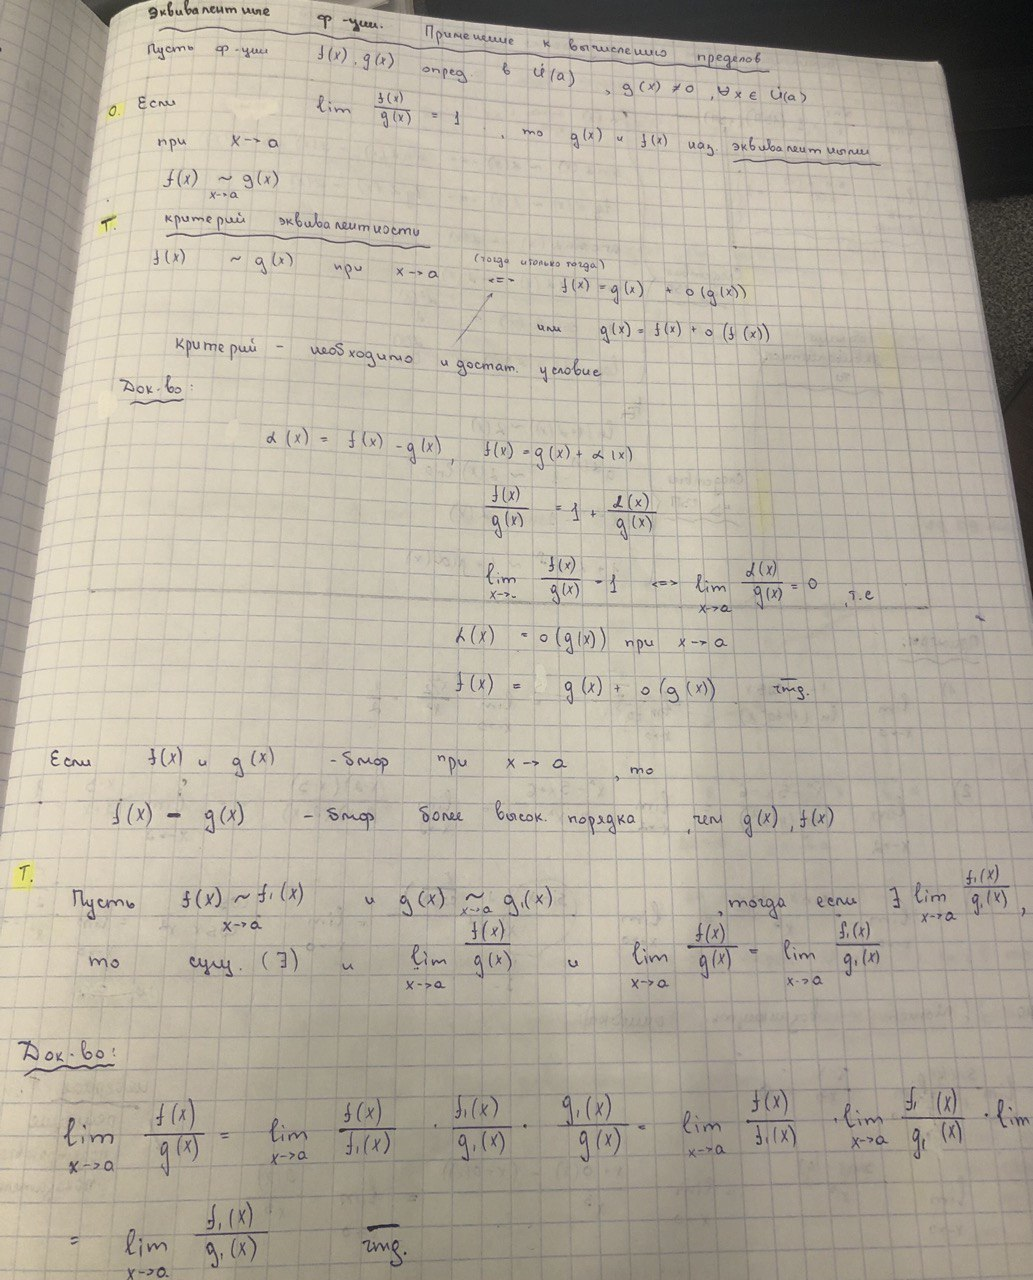 Эквивалентные ф-ции. Применение к вычислению пределов
Пусть ф-ции f(x), g(x) опред в U̇(a), g(x) ≠ 0, ∀x ∈ U̇(a)
О. Если lim f(x)/g(x) = 1, то g(x) и f(x) наз. эквивалентными
при x→a
f(x) ~ g(x)
x→a
Т. критерий эквивалентности
f(x) ~ g(x) при x→a (тогда и только тогда) <=> f(x) = g(x) + o(g(x))
или g(x) = f(x) + o(f(x))
Критерий - необходимо и достат. условие
Док-во:
α(x) = f(x) - g(x), f(x) = g(x) + α(x)
f(x)/g(x) = 1 + α(x)/g(x)
lim x→ f(x)/g(x) = 1 <=> lim x→a α(x)/g(x) = 0, т.е
α(x) = o(g(x)) при x→a
f(x) = g(x) + o(g(x)) чтд.
Если f(x) и g(x) - бмф при x→a, то
f(x) - g(x) - бмф более высок. порядка, чем g(x), f(x)
Т. Пусть f(x) ~ f₁(x) x→a и g(x) ~ g₁(x) x→a, тогда если ∃ lim x→a f₁(x)/g₁(x),
то сущ. (∃) и lim x→a f(x)/g(x) и lim x→a f(x)/g(x) = lim x→a f₁(x)/g₁(x)
Док-во:
lim x→a f(x)/g(x) = lim x→a f(x)/f₁(x) · f₁(x)/g₁(x) · g₁(x)/g(x) = lim x→a f(x)/f₁(x) · lim x→a f₁(x)/g₁(x) · lim
= lim x→a f₁(x)/g₁(x) чтд.